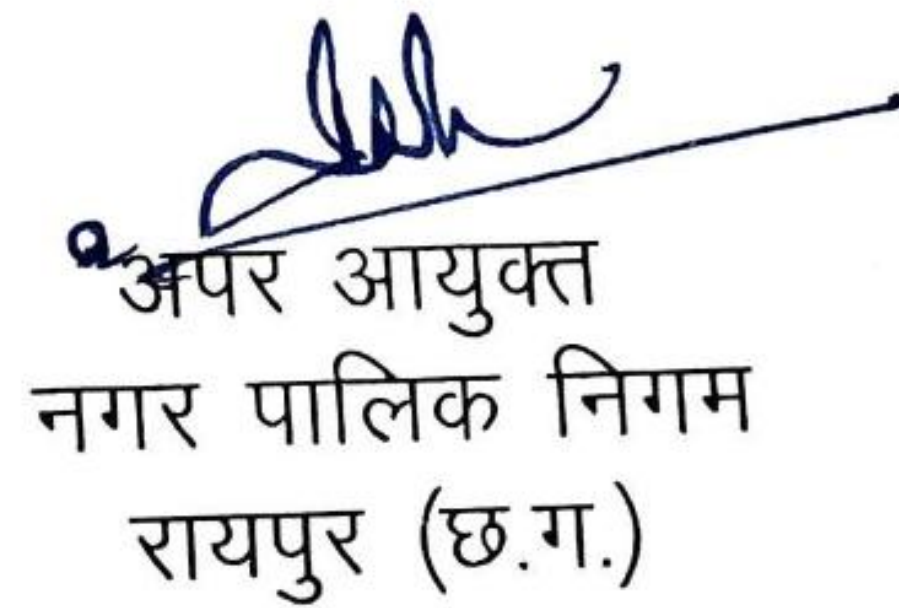 अपर आयुक्त
नगर पालिक निगम
रायपुर (छ.ग.)